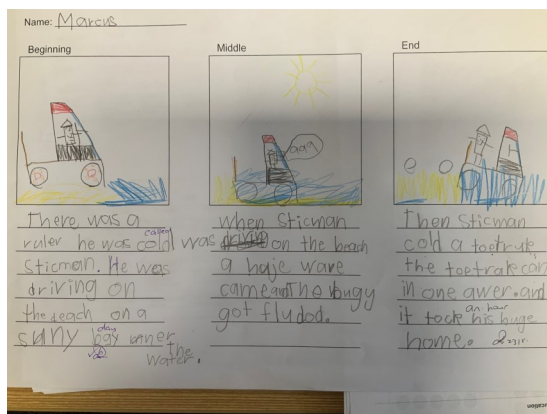 Name: Marcus
Beginning
There was a
ruler he was cold called
Sticman. He was
driving on
the beach on a
suny day near
the
water.
Middle
aaa
When Sticman
was driving on the beach
a haje wave
came and The bugy
got fludod.
End
Then Sticman
cold a toetruk
the toetrake cam
in one awer. and
it took his buge
an hour
home.